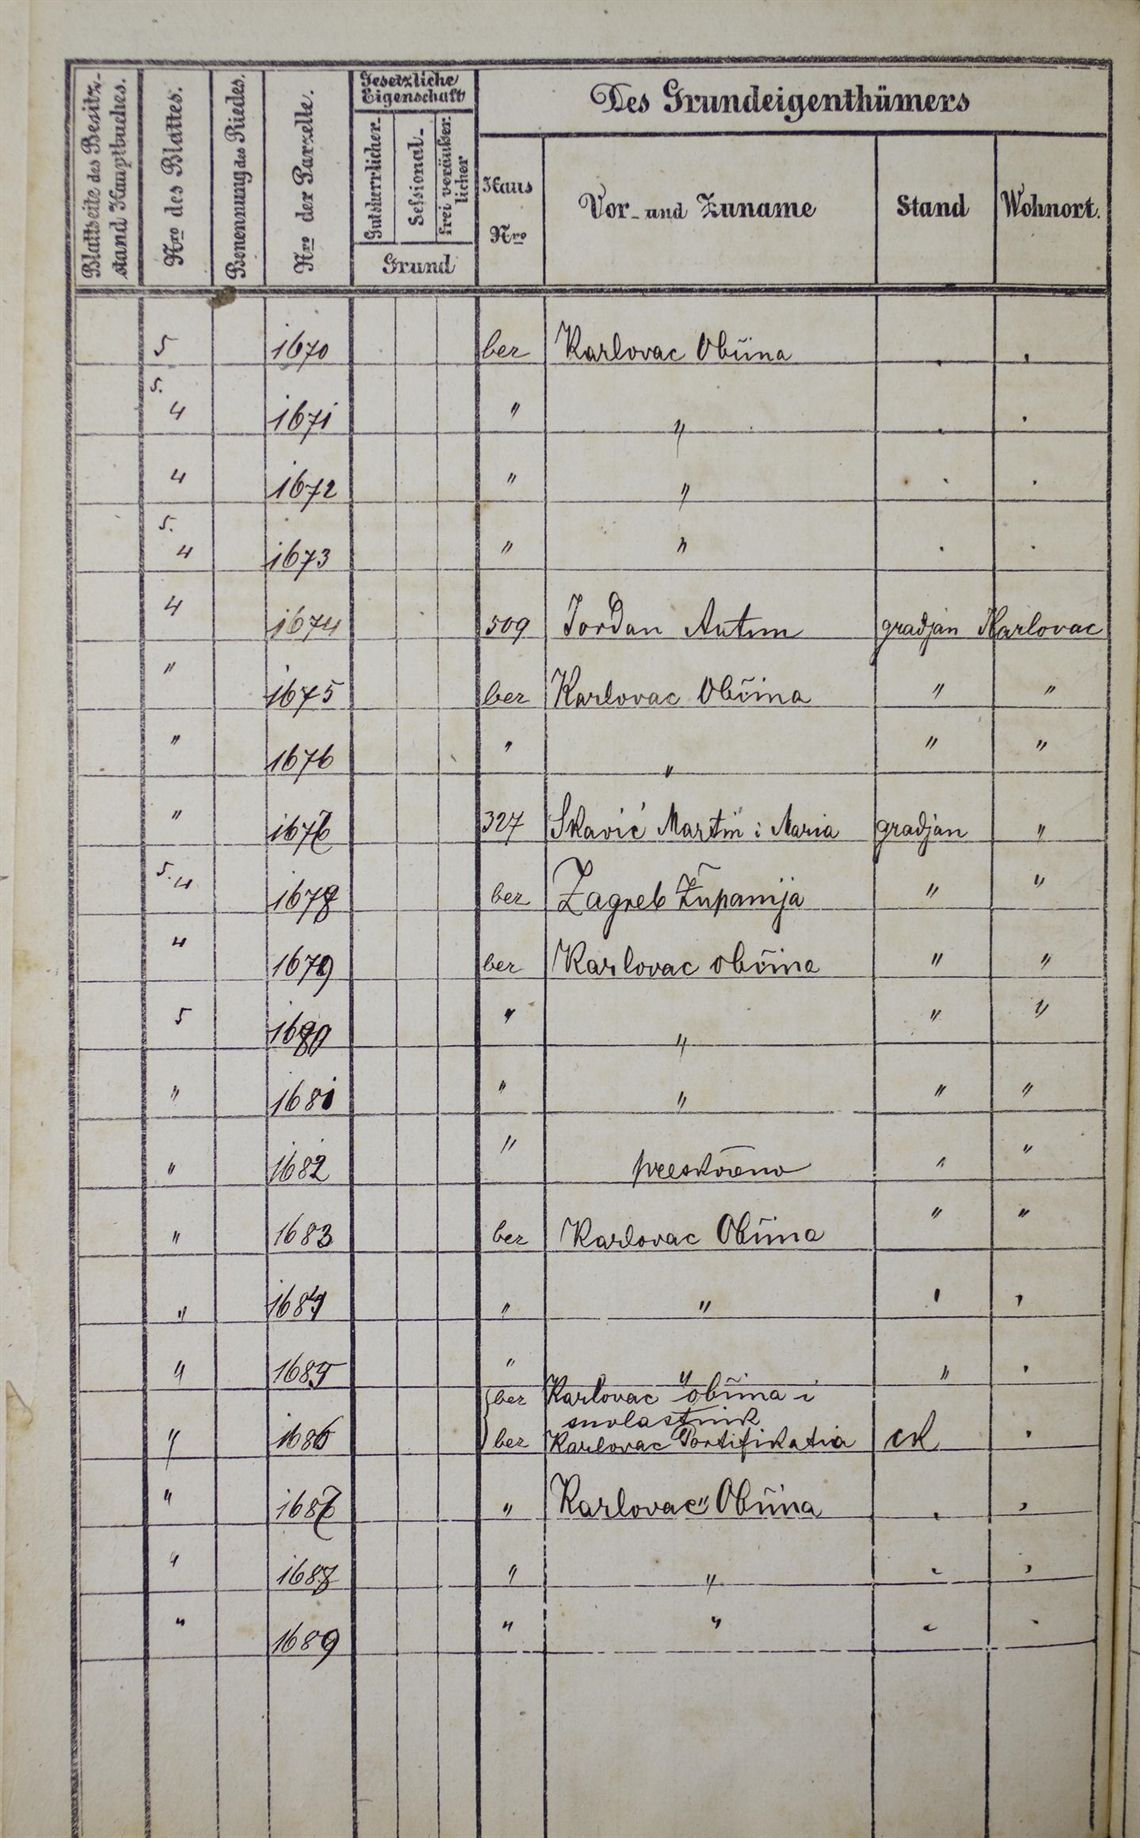 Blattseite des Besitz-
stand Hauptbuches.
Nro des Blattes.
Benennung des Riedes.
Nro der Parzelle.
Gesetzliche
Eigenschaft
Gutsherrlicher.
Sessional-
frei veräußer-
licher
Grund
Des Grundeigenthümers
Haus
Nro
Vor- und Zuname
Stand
Wohnort.
5 1670 bez Karlovac Obćina . .
5.
4 1671 " " . .
4 1672 " " . .
5.
4 1673 " " . .
4 1674 509 Jordan Antun gradjan Karlovac
" 1675 bez Karlovac Občina " "
" 1676 " " " "
" 1677 327 Skavić Martin i Maria gradjan "
5.4 1678 bez Zagreb Županija " "
4 1679 bez Karlovac občina " "
5 1680 " " " "
" 1681 " " " "
" 1682 " preskočeno " "
" 1683 bez Karlovac Občina " "
" 1684 " " " "
" 1685 " " " .
bez Karlovac občina i
suvlastnik
" 1686 bez Karlovac Fortifikatia ck .
" 1687 " Karlovac " Občina . "
" 1688 " " . "
" 1689 " " . .